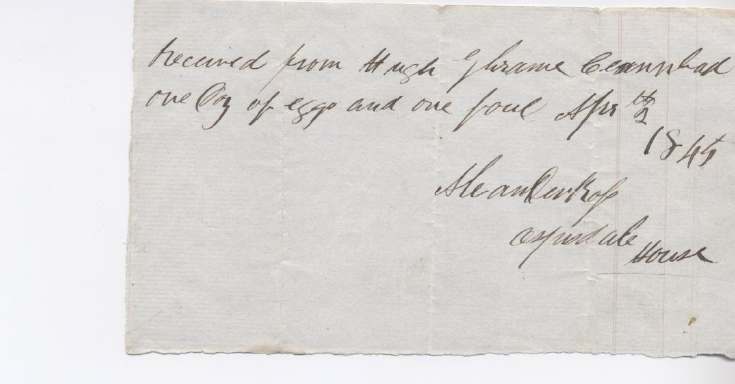 Received from Hugh Ghrame Ceannloch
one Doz of eggs and one foul Apr 2th
1845
Alexander Ross
House